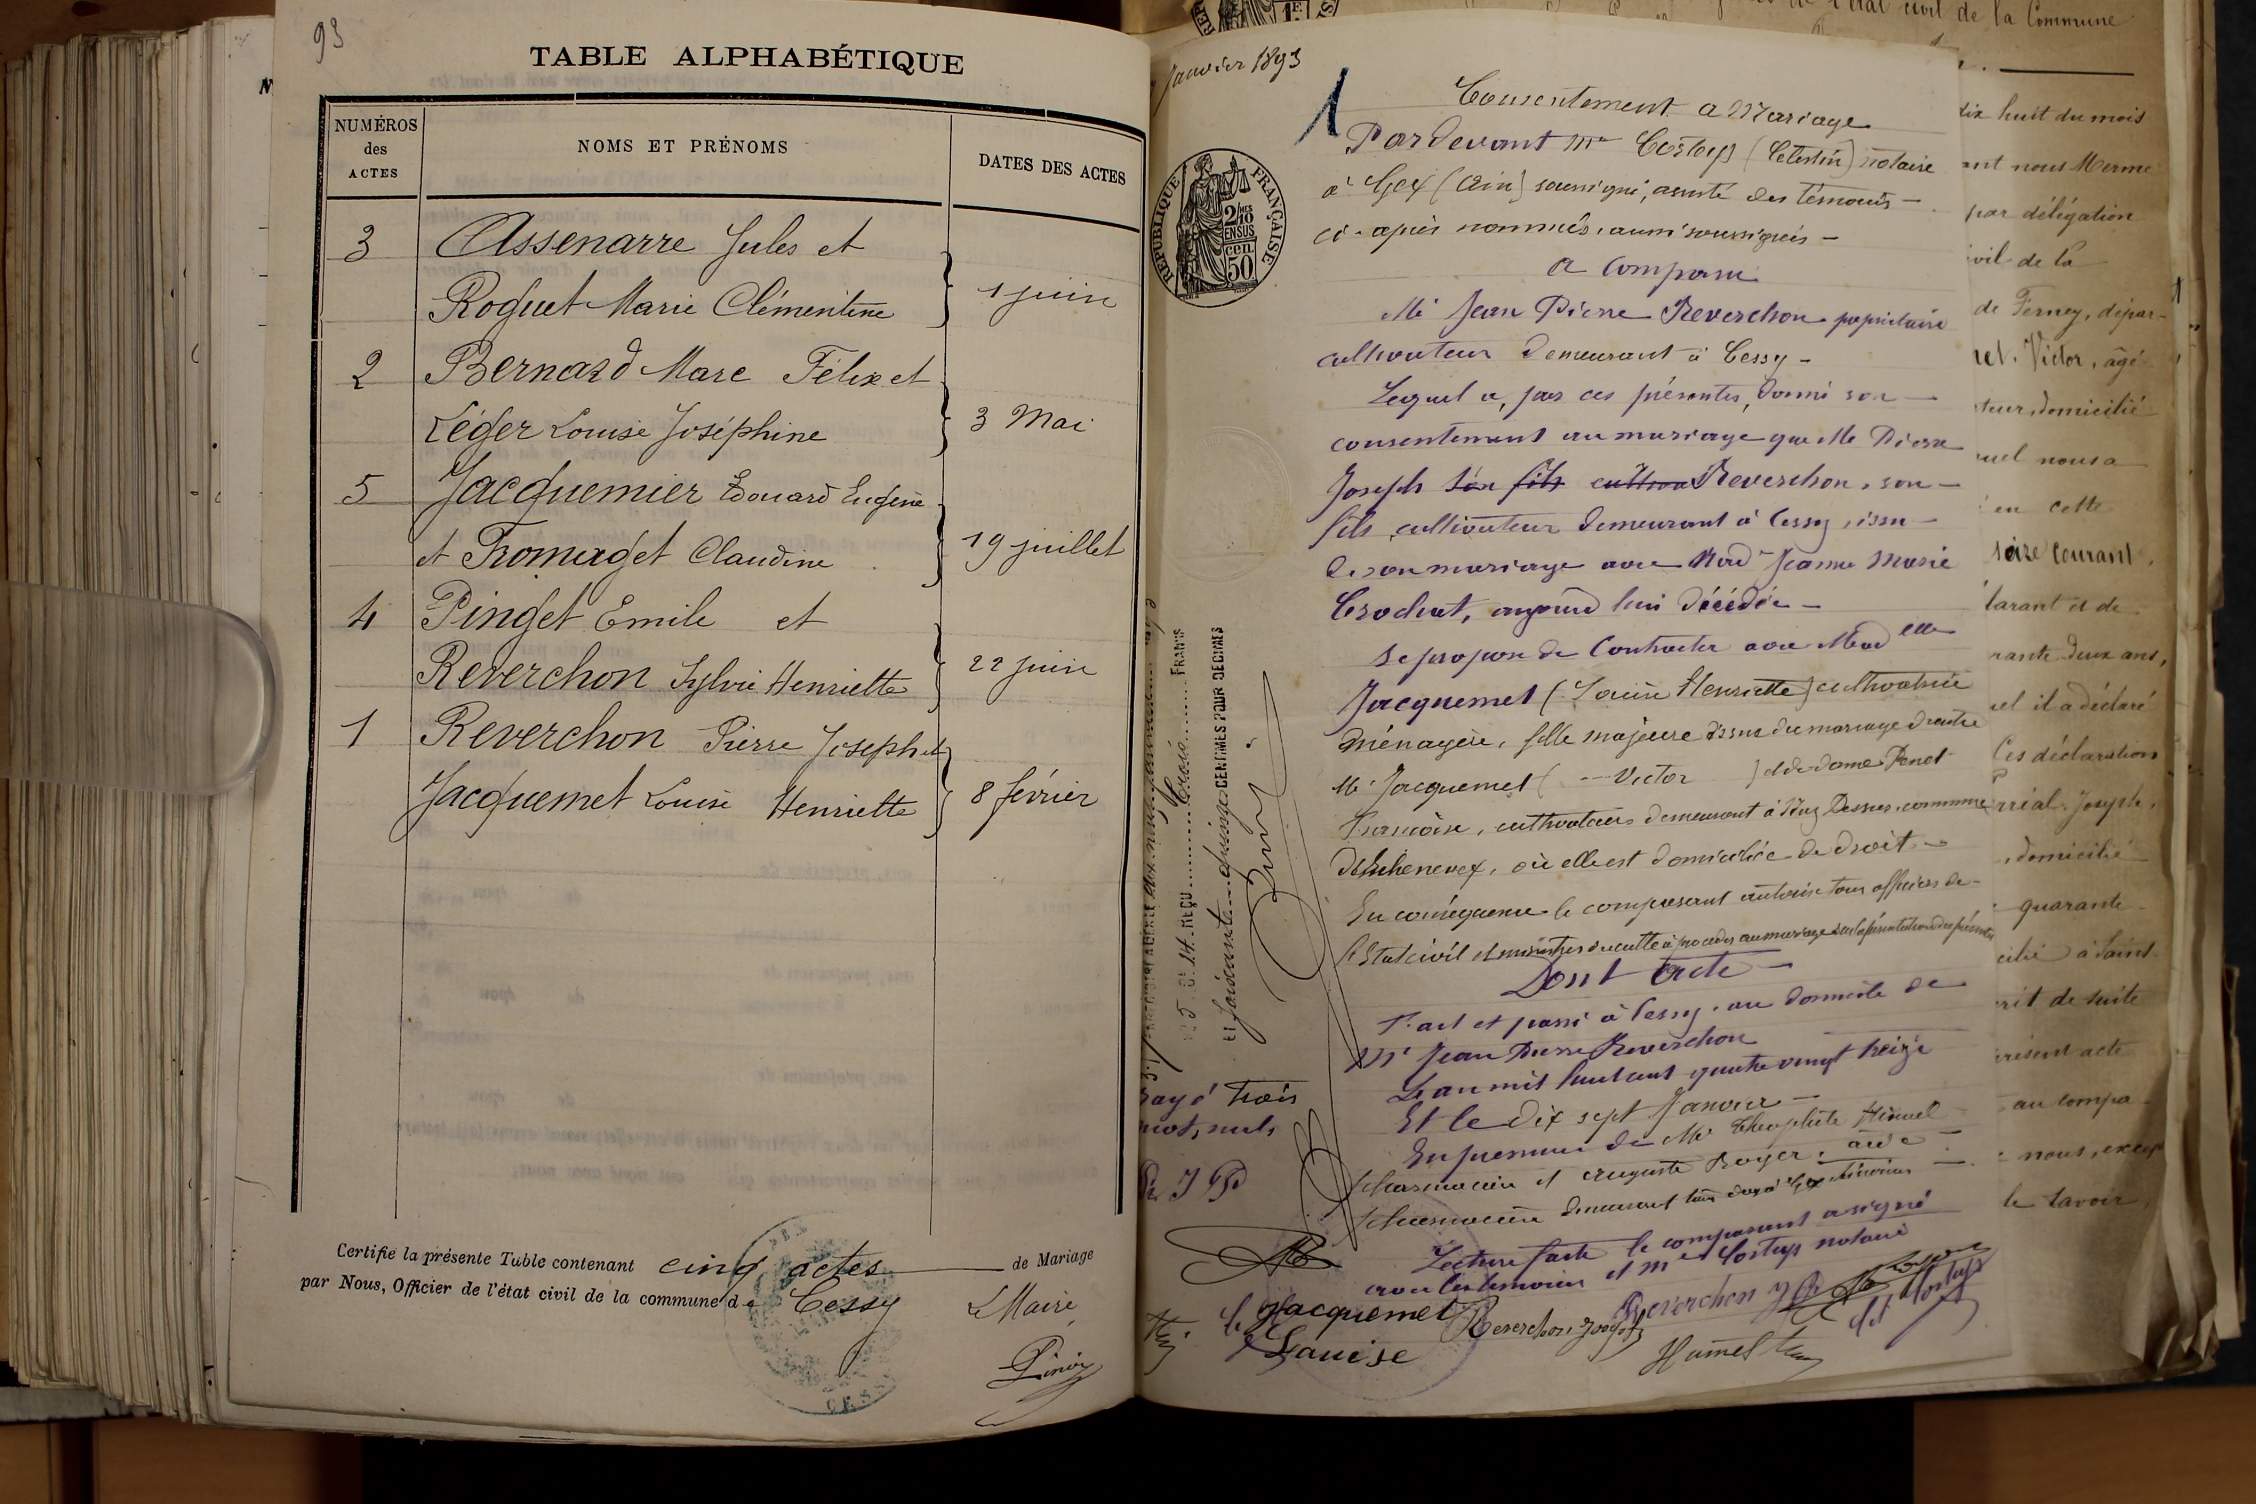 93
TABLE ALPHABÉTIQUE
NUMÉROS
des
ACTES
NOMS ET PRÉNOMS
DATES DES ACTES
3 Assenarre Jules et
Roguet Marie Clémentine } 1 juin
2 Bernard Marc Félix et
Léger Louise Joséphine } 3 Mai
5 Jacquemier Edouard Eugène
et Fromaget Claudine } 19 juillet
4 Pinget Emile et
Reverchon Sylvie Henriette } 22 juin
1 Reverchon Pierre Joseph et
Jacquemet Louise Henriette } 8 février
Certifie la présente Table contenant cinq actes de Mariage
par Nous, Officier de l'état civil de la commune de Cessy Le Maire,
CESSY
Janvier 1893
1
RÉPUBLIQUE FRANÇAISE
2/10 MES
EN SUS
50 CEN.
Consentement a Mariage
Pardevant Me Costaz (Célestin) notaire
à Gex (Ain) soussigné, assisté des témoins
ci-après nommés, aussi soussignés
a comparu
Mr Jean Pierre Reverchon propriétaire
cultivateur demeurant à Cessy
Lequel a, par ces présentes, donné son
consentement au mariage que Mr Pierre
Joseph son fils cultiva Reverchon, son
fils, cultivateur demeurant à Cessy, issu
de son mariage avec Mad Jeanne Marie
Crochet, aujourd'hui décédée
se propose de Contracter avec Madelle
Jacquemet (Louise Henriette) cultivatrice
ménagère, fille majeure issue du mariage d'entre
Mr Jacquemet ( -- Victor ) et de dame Penet
Françoise, cultivateurs demeurant à Naz Dessus, commune
d'Echenevex, où elle est domiciliée de droit
En conséquence le comparant autorise tous officiers de
l'Etat civil et ministres du culte à procéder au mariage sur la présentation des présentes
Dont Acte
Fait et passé à Cessy, au domicile de
Mr Jean Pierre Reverchon
L'an mil huit cent quatre vingt treize
Et le dix sept Janvier
En présence de Mr Théophile Humel
pharmacien et Auguste Royer, aide
pharmacien demeurant tous deux à Gex témoins
Lecture faite le comparant a signé
avec les témoins et Me Costaz notaire
REÇU trois FRANCS
et soixante quinze CENTIMES POUR DECIMES
Rayé trois
mots nuls
R J P
Jacquemet
Louise
Reverchon Joseph
Reverchon J P
Humel
Costaz
de l'état civil de la Commune
dix huit du mois
ant nous Merme
par délégation
ivil de la
de Ferney, dépar-
Victor, âgé
teur, domicilié
uel nous a
en cette
seize courant,
larant et de
rante deux ans,
uel il a déclaré
Ces déclarations
rrial Joseph,
, domicilié
quarante
cilié à Saint-
rit de suite
présent acte
au compa-
nous, excep
le savoir,